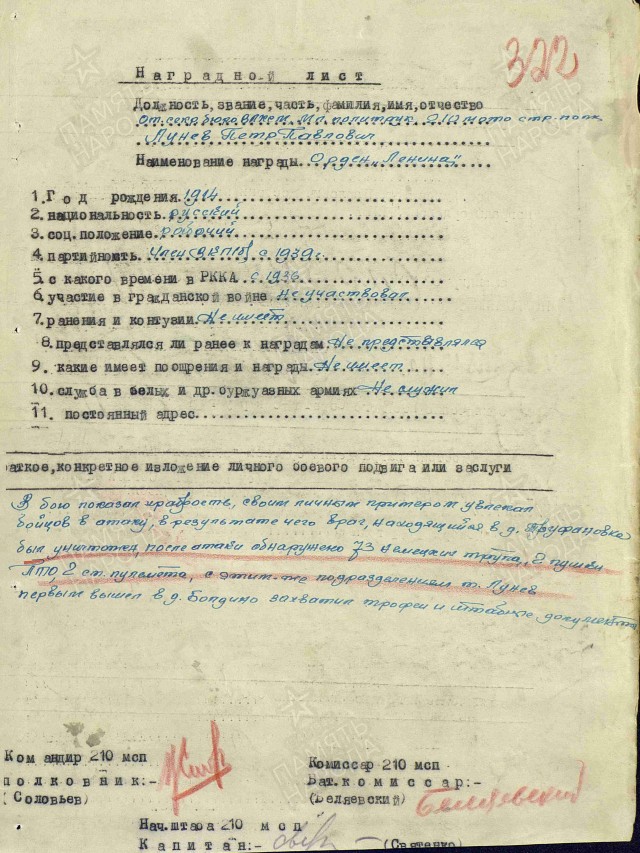 322
Наградной лист
Должность, звание, часть, фамилия, имя, отчество
От. секр. бюро ВЛКСМ Мл. политрук 210 мото стр. полк
Лунев Петр Павлович
Наименование награды Орден "Ленина"
1. Год рождения 1914
2. национальность русский
3. соц. положение рабочий
4. партийность член ВКП(б) с 1939 г.
5. с какого времени в РККА с 1936
6. участие в гражданской войне Не участвовал
7. ранения и контузии Не имеет
8. представлялся ли ранее к наградам Не представлялся
9. какие имеет поощрения и награды Не имеет
10. служба в белых и др. буржуазных армиях Не служил
11. постоянный адрес
раткое, конкретное изложение личного боевого подвига или заслуги
В бою показал храбрость, своим личным примером увлекал
бойцов в атаку, в результате чего враг, находящийся в д. Труфановка
был уничтожен, после атаки обнаружено 73 немецких трупа, 2 пушки
ПТО, 2 ст. пулемета, с этим же подразделением т. Лунев
первым вышел в д. Болдино захватил трофеи и штабные документы
Командир 210 мсп
полковник:-
(Соловьев)
Комиссар 210 мсп
Бат. комиссар:-
(Беляевский) Беляевский
Нач. штаба 210 мсп
Капитан:- (Святенко)